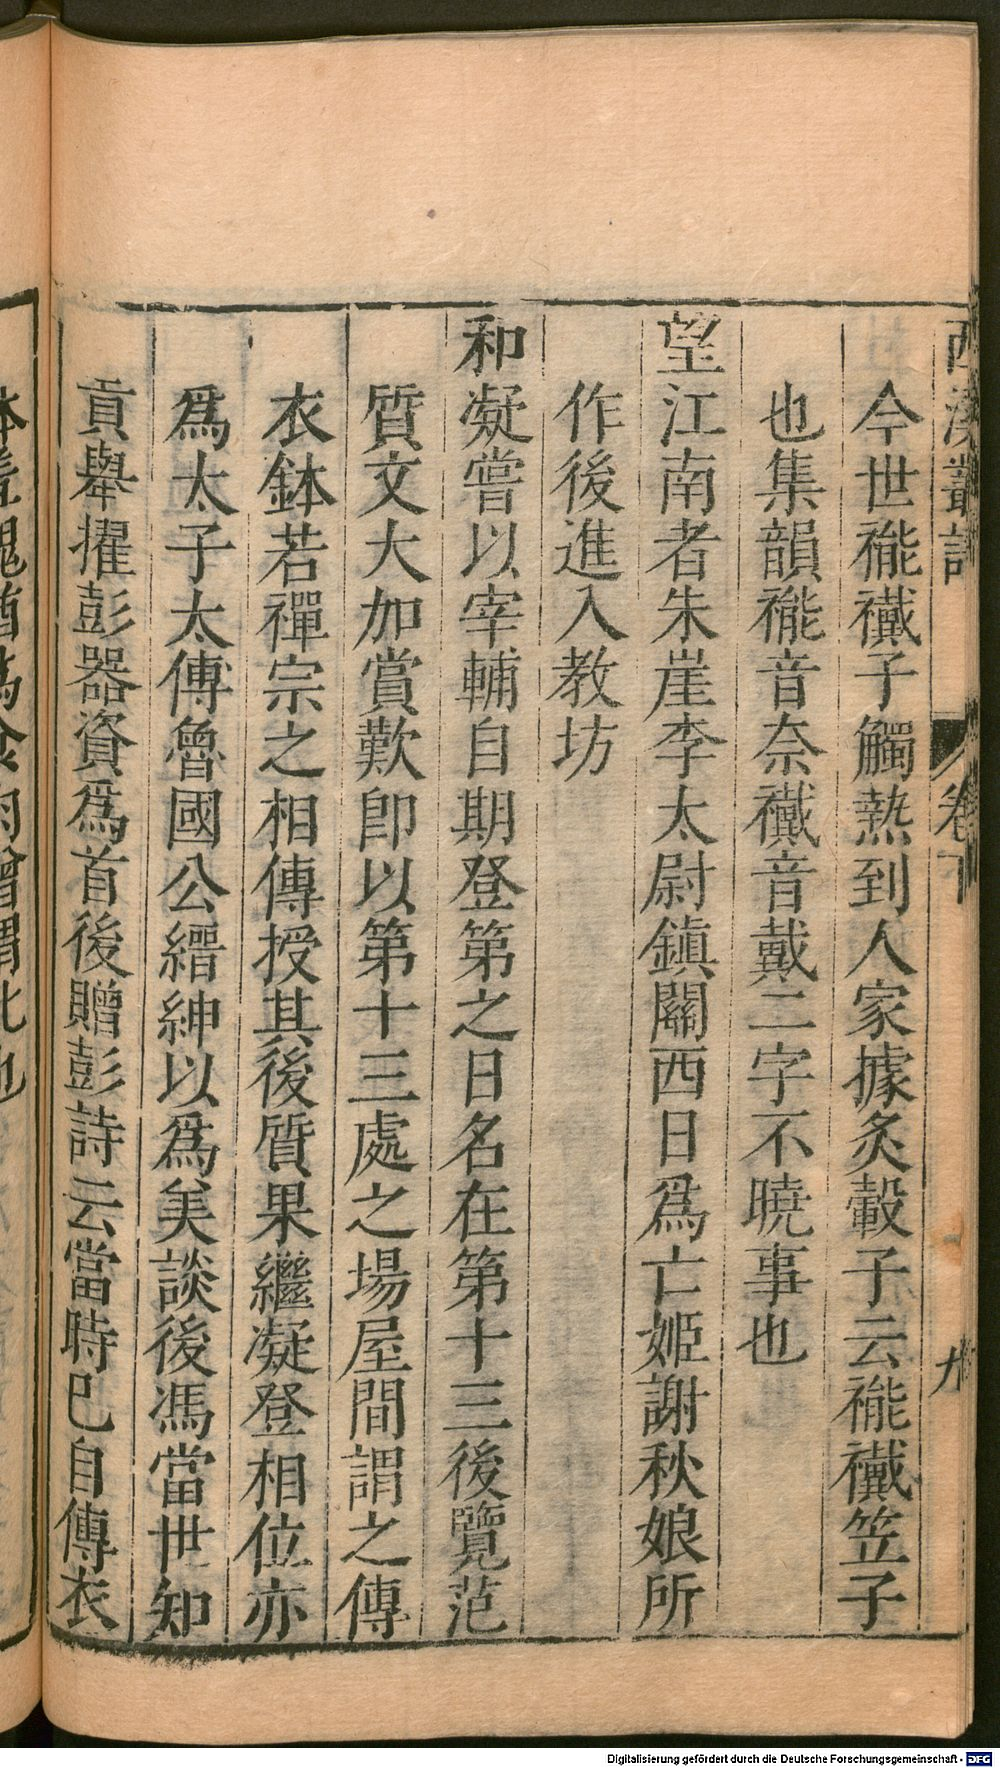 西溪叢語 卷下 九
今世褦襶子觸熱到人家據炙轂子云褦襶笠子
也集韻褦音奈襶音戴二字不曉事也
望江南者朱崖李太尉鎮關西日爲亡姬謝秋娘所
作後進入教坊
和凝嘗以宰輔自期登第之日名在第十三後覽范
質文大加賞歎即以第十三處之場屋間謂之傳
衣鉢若禪宗之相傳授其後質果繼凝登相位亦
爲太子太傅魯國公縉紳以爲美談後馮當世知
貢舉擢彭器資爲首後贈彭詩云當時已自傳衣
Digitalisierung gefördert durch die Deutsche Forschungsgemeinschaft - DFG